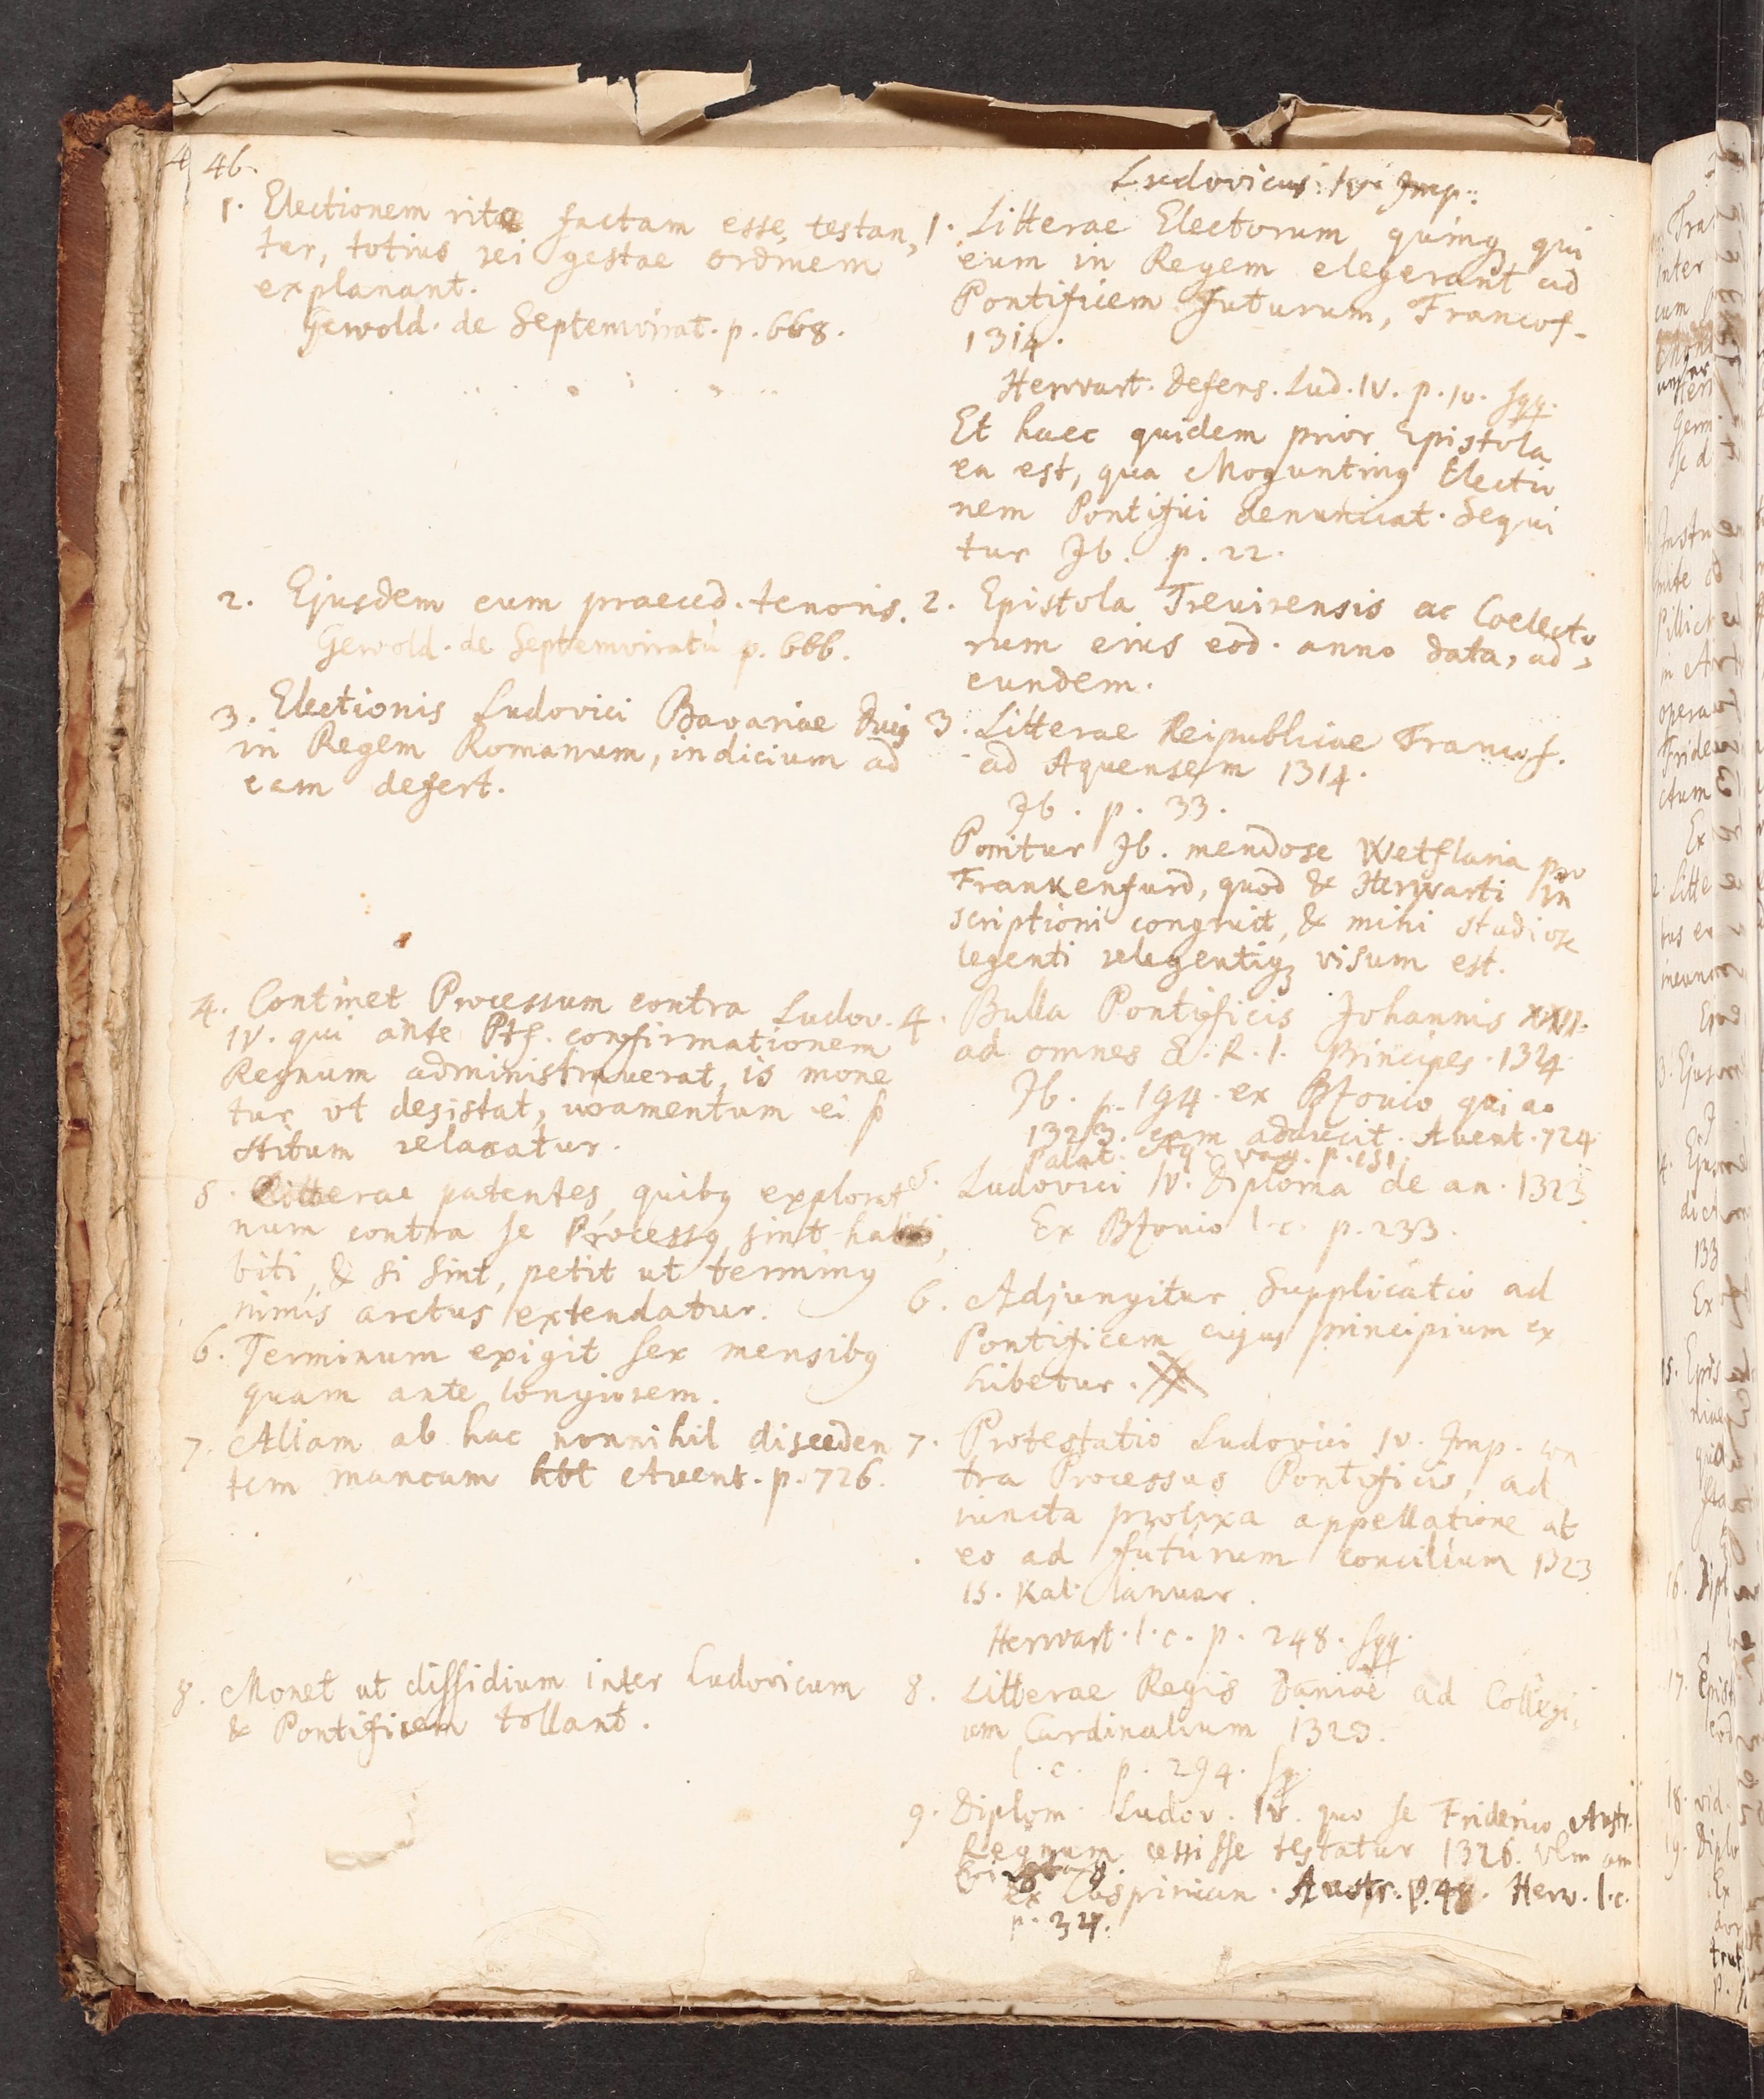 46.
1. Electionem rite factam esse, testan,
tur, totius rei gestae ordinem
explanant.
Gewold. de Septemvirat. p. 668.
2. Ejusdem cum praeced. tenoris.
Gewold. de Septemviratu p. 666.
3. Electionis Ludovici Bavariae Ducis
in Regem Romanum, indicium ad
eam defert.
4. Continet Processum contra Ludov.
IV. qui ante Ptf. confirmationem
Regnum administraverat, is mone
tur ut desistat, iuramentum ei p
stitum relaxatur.
5. Litterae patentes, quibq explorat
num contra se Processq sint
biti, & si sint, petit ut terminq
nimis arctus extendatur.
6. Terminum exigit sex mensibq
quam ante longiorem.
7. Aliam ab hac nonnihil disceden
tem mancum hbt Avent. p. 726.
8. Monet ut dissidium inter Ludovicum
& Pontificem tollant.
Ludovicus IV. Imp:
1. Litterae Electorum quinq qui
eum in Regem elegerant ad
Pontificem futurum, Francof.
1314.
Herwart. Defens. Lud. IV. p. 10. sqq.
Et haec quidem prior Epistola
ea est, qua Moguntinq Electio
nem Pontifici denunciat. Sequi
tur Ib. p. 22.
2. Epistola Trevirensis ac Coelecto
rum eius eod. anno data, ad,
eundem.
3. Litterae Reipublicae Francof.
ad Aquensem 1314.
Ib. p. 33.
Ponitur Ib. mendose Wetflaria pro
Frankenfurd, quod & Herwarti in
scriptioni congruit, & mihi studiose
legenti relegentiq visum est.
4. Bulla Pontificis Johannis XXII.
ad omnes S. R. I. Principes. 1324.
Ib. p. 194. ex Bzovio qui ao
1323. eam adducit. Avent. 724
Palat. Aq. vag. p. 151.
5. Ludovici IV. Diploma de an. 1323
Ex Bzovio l. c. p. 233.
6. Adjungitur Supplicatio ad
Pontificem cujus principium ex
hibetur.
7. Protestatio Ludovici IV. Imp. con
tra Processus Pontificis, ad
iuncta prolixa appellatione ab
eo ad futurum concilium 1323
15. Kal. Ianuar.
Herwart. l. c. p. 248. sqq.
8. Litterae Regis Daniae ad Collegi,
um Cardinalium 1323.
l. c. p. 294. sq.
9. Diplom. Ludov. IV. quo se Friderico Austr.
Regnum cessisse testatur 1326. Vlm am
ex Cuspinian. Austr. p. 48. Herw. l. c.
p. 324.